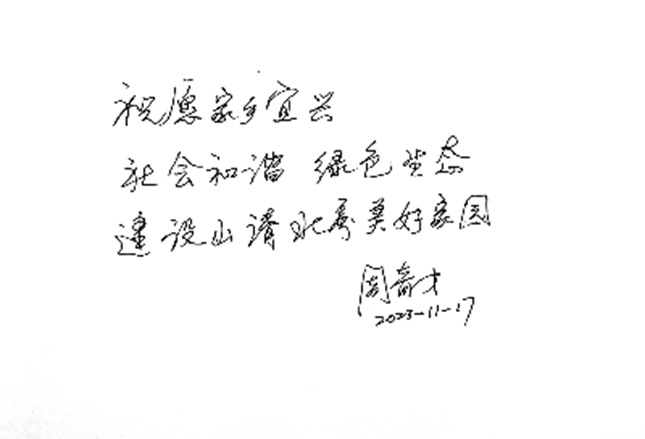 祝愿家乡宜兴
社会和谐 绿色生态
建设山清水秀美好家园
周奇才
2023-11-17